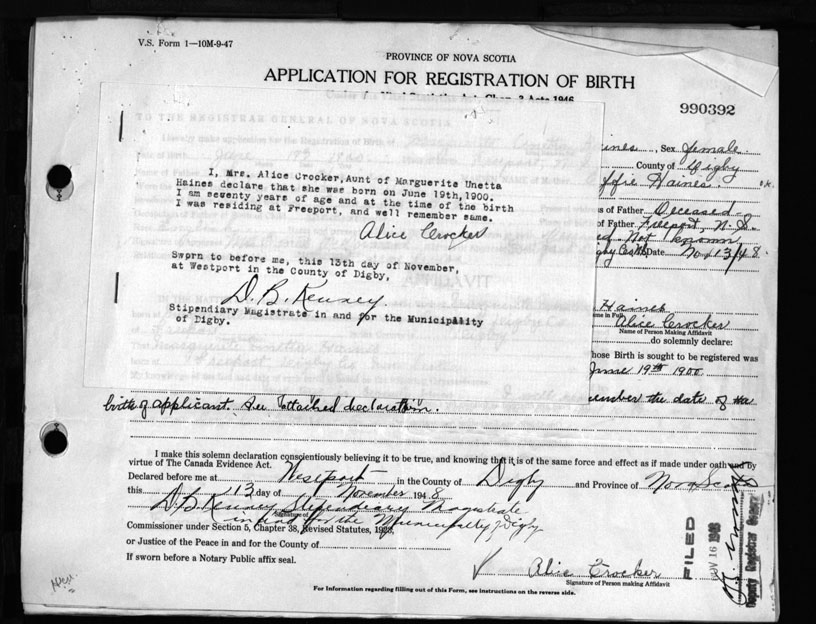 V.S. Form 1—10M-9-47
PROVINCE OF NOVA SCOTIA
APPLICATION FOR REGISTRATION OF BIRTH
990392
TO THE REGISTRAR GENERAL OF NOVA SCOTIA
Sex female
County of Digby
I, Mrs. Alice Crocker, Aunt of Marguerite Unetta
Haines declare that she was born on June 19th, 1900.
I am seventy years of age and at the time of the birth
I was residing at Freeport, and well remember same.
Alice Crocker
Sworn to before me, this 13th day of November,
at Westport in the County of Digby,
Stipendiary Magistrate in and for the Municipality
of Digby.
Haines. o.k.
s of Father Deceased
of Father Freeport, N.S.
Not known
Date Nov 13/48
Haines
me in Full
Alice Crocker
Name of Person Making Affidavit
do solemnly declare:
hose Birth is sought to be registered was
June 19th 1900
the date of the
birth of applicant. See attached declaration.
I make this solemn declaration conscientiously believing it to be true, and knowing that it is of the same force and effect as if made under oath and by
virtue of The Canada Evidence Act.
Declared before me at Westport in the County of Digby and Province of Nova Scotia
this 13 day of November 1948
Stipendiary Magistrate
Signature of
in and for the Municipality of Digby
Commissioner under Section 5, Chapter 38, Revised Statutes, 1923,
or Justice of the Peace in and for County of
If sworn before a Notary Public affix seal.
Alice Crocker
Signature of Person making Affidavit
For Information regarding filling out of this Form, see instructions on the reverse side.
FILED
NOV 16 1948
Deputy Registrar General